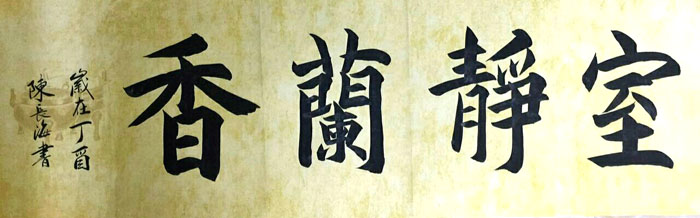 室靜蘭香
歲在丁酉
陳長海書